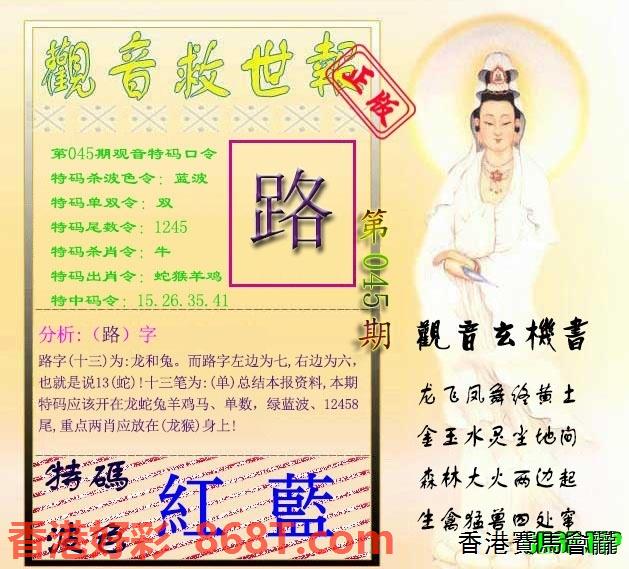 觀音救世報
正版
第045期观音特码口令
特码杀波色令：蓝波
特码单双令：双
特码尾数令：1245
特码杀肖令：牛
特码出肖令：蛇猴羊鸡
特中码令：15.26.35.41
路
第045期
分析:（路）字
路字(十三)为:龙和兔。而路字左边为七,右边为六,
也就是说13(蛇)!十三笔为:(单)总结本报资料,本期
特码应该开在龙蛇兔羊鸡马、单数，绿蓝波、12458
尾,重点两肖应放在(龙猴)身上!
觀音玄機書
龙飞凤舞络黄土
金玉水灵尘地间
森林大火两边起
生禽猛兽四处窜
特碼
波色
紅 藍
香港好彩 868T.com
香港賽馬會